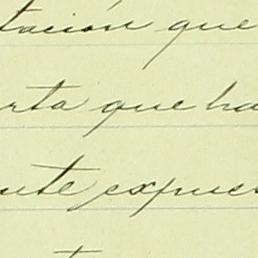 tación que
rta que ha
ente expues